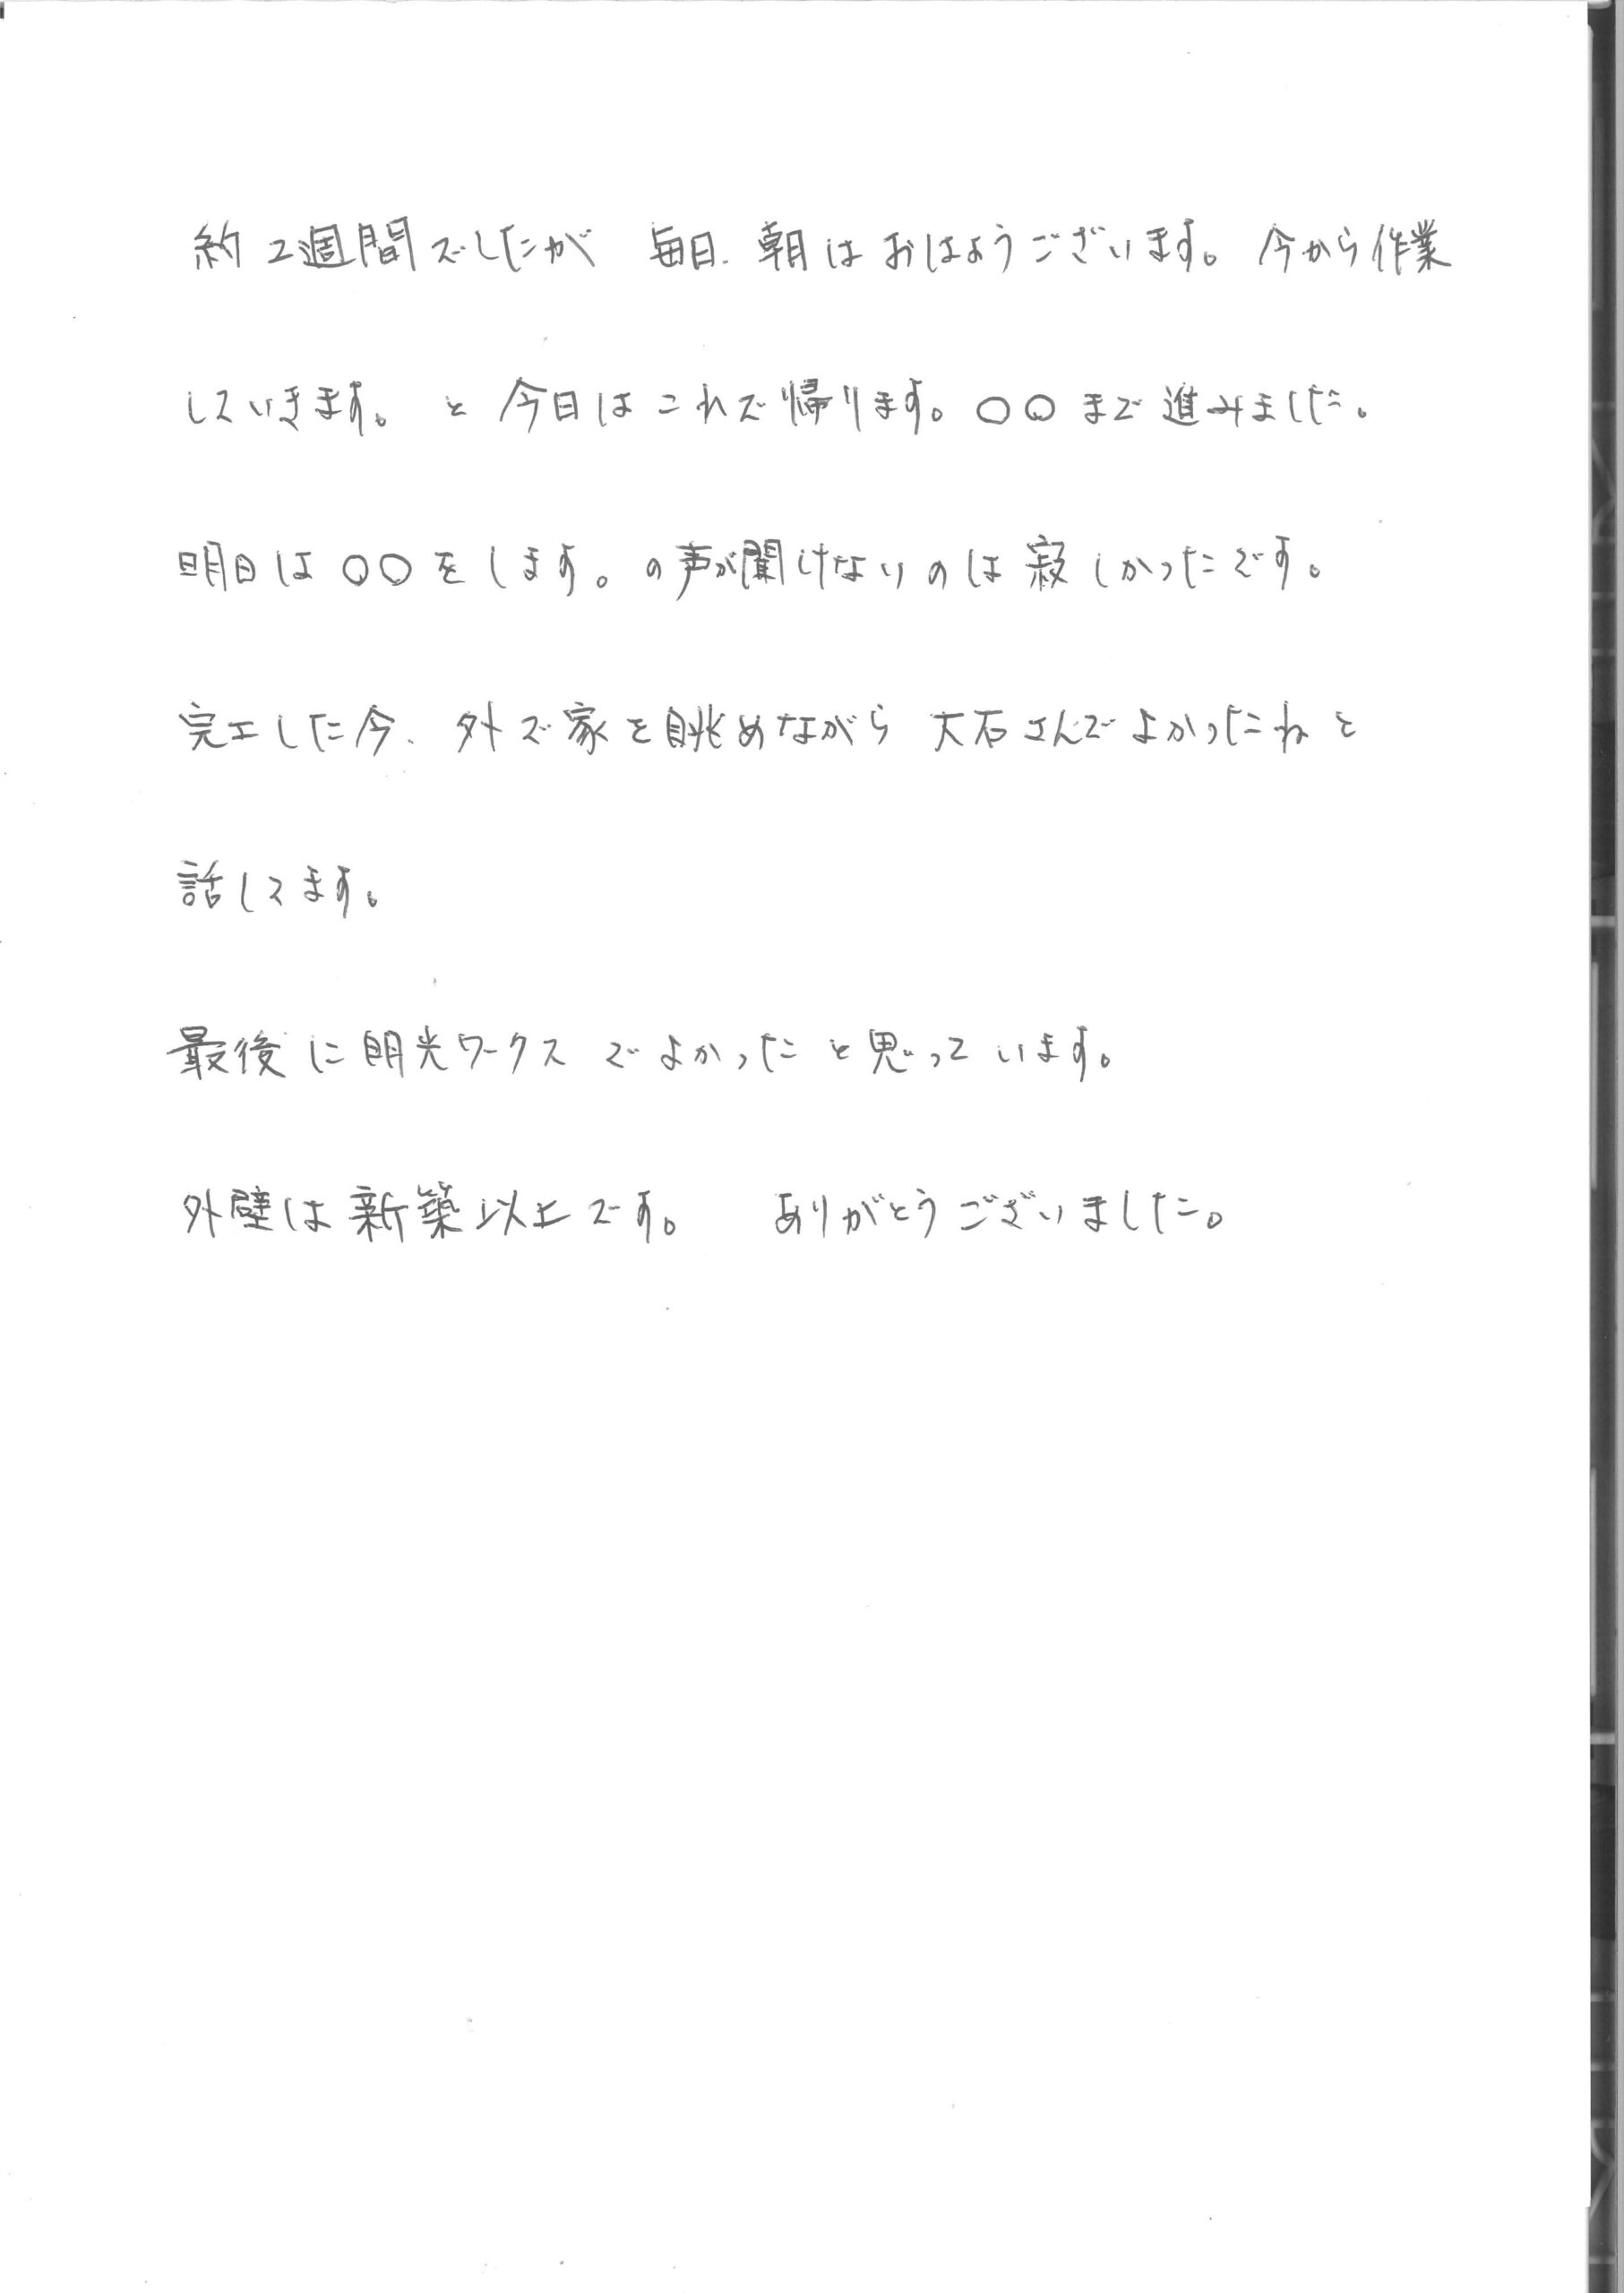 約2週間でしたが 毎日、朝はおはようございます。今から作業
していきます。と今日はこれで帰ります。〇〇まで進みました。
明日は〇〇をします。の声が聞けないのは寂しかったです。
完工した今、外で家を眺めながら大石さんでよかったねと
話してます。
最後に明光ワークスでよかったと思っています。
外壁は新築以上です。 ありがとうございました。